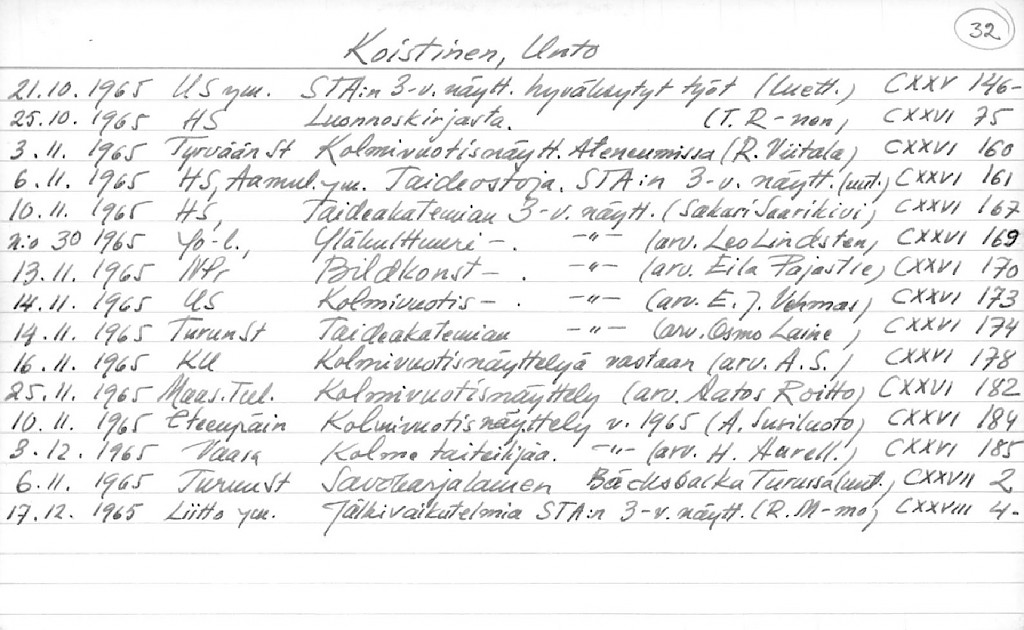 32
Koistinen, Unto
21.10. 1965 US ym. STA:n 3-v. näytt. hyväksytyt työt (luett.) CXXV 146-
25.10. 1965 HS Luonnoskirjasta. (T. R-nen) CXXVI 75
3.11. 1965 TyrväänSt Kolmivuotisnäytt. Ateneumissa (R. Viitala) CXXVI 160
6.11. 1965 HS, Aamul. ym. Taideostoja. STA:n 3-v. näytt. (uut.) CXXVI 161
10.11. 1965 HS, Taideakatemian 3-v. näytt. (Sakari Saarikivi) CXXVI 167
n:o 30 1965 Yo-l., Yläkulttuuri - . -"- (arv. Leo Lindsten, CXXVI 169
13.11. 1965 NPr Bildkonst - . -"- (arv. Eila Pajastie) CXXVI 170
14.11. 1965 US Kolmivuotis - . -"- (arv. E. J. Vehmas) CXXVI 173
14.11. 1965 TurunSt Taideakatemian -"- (arv. Osmo Laine) CXXVI 174
16.11. 1965 KU Kolmivuotisnäyttelyjä vastaan (arv. A.S.) CXXVI 178
25.11. 1965 Maas.Tul. Kolmivuotisnäyttely (arv. Aatos Roitto) CXXVI 182
10.11. 1965 Eteenpäin Kolmivuotisnäyttely v. 1965 (A. Susiluoto) CXXVI 184
3.12. 1965 Vaasa Kolme taiteilijaa. -"- (arv. H. Aurell.) CXXVI 185
6.11. 1965 TurunSt Savokarjalainen Bäcksbacka Turussa (uut.) CXXVII 2
17.12. 1965 Liitto ym. Jälkivaikutelmia STA:n 3-v. näytt. (R. M-mo) CXXVIII 4-